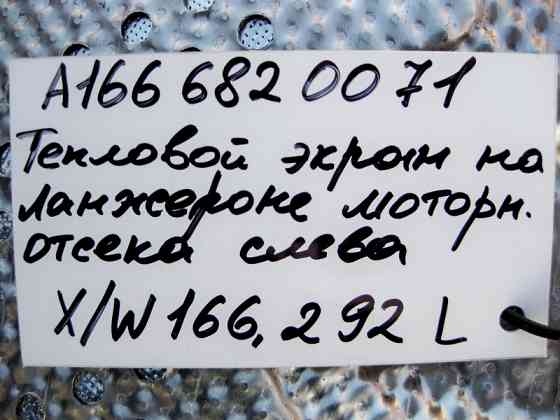 A166 682 00 71
Тепловой экран на
лонжероне моторн.
отсека слева
X/W166, 292 L